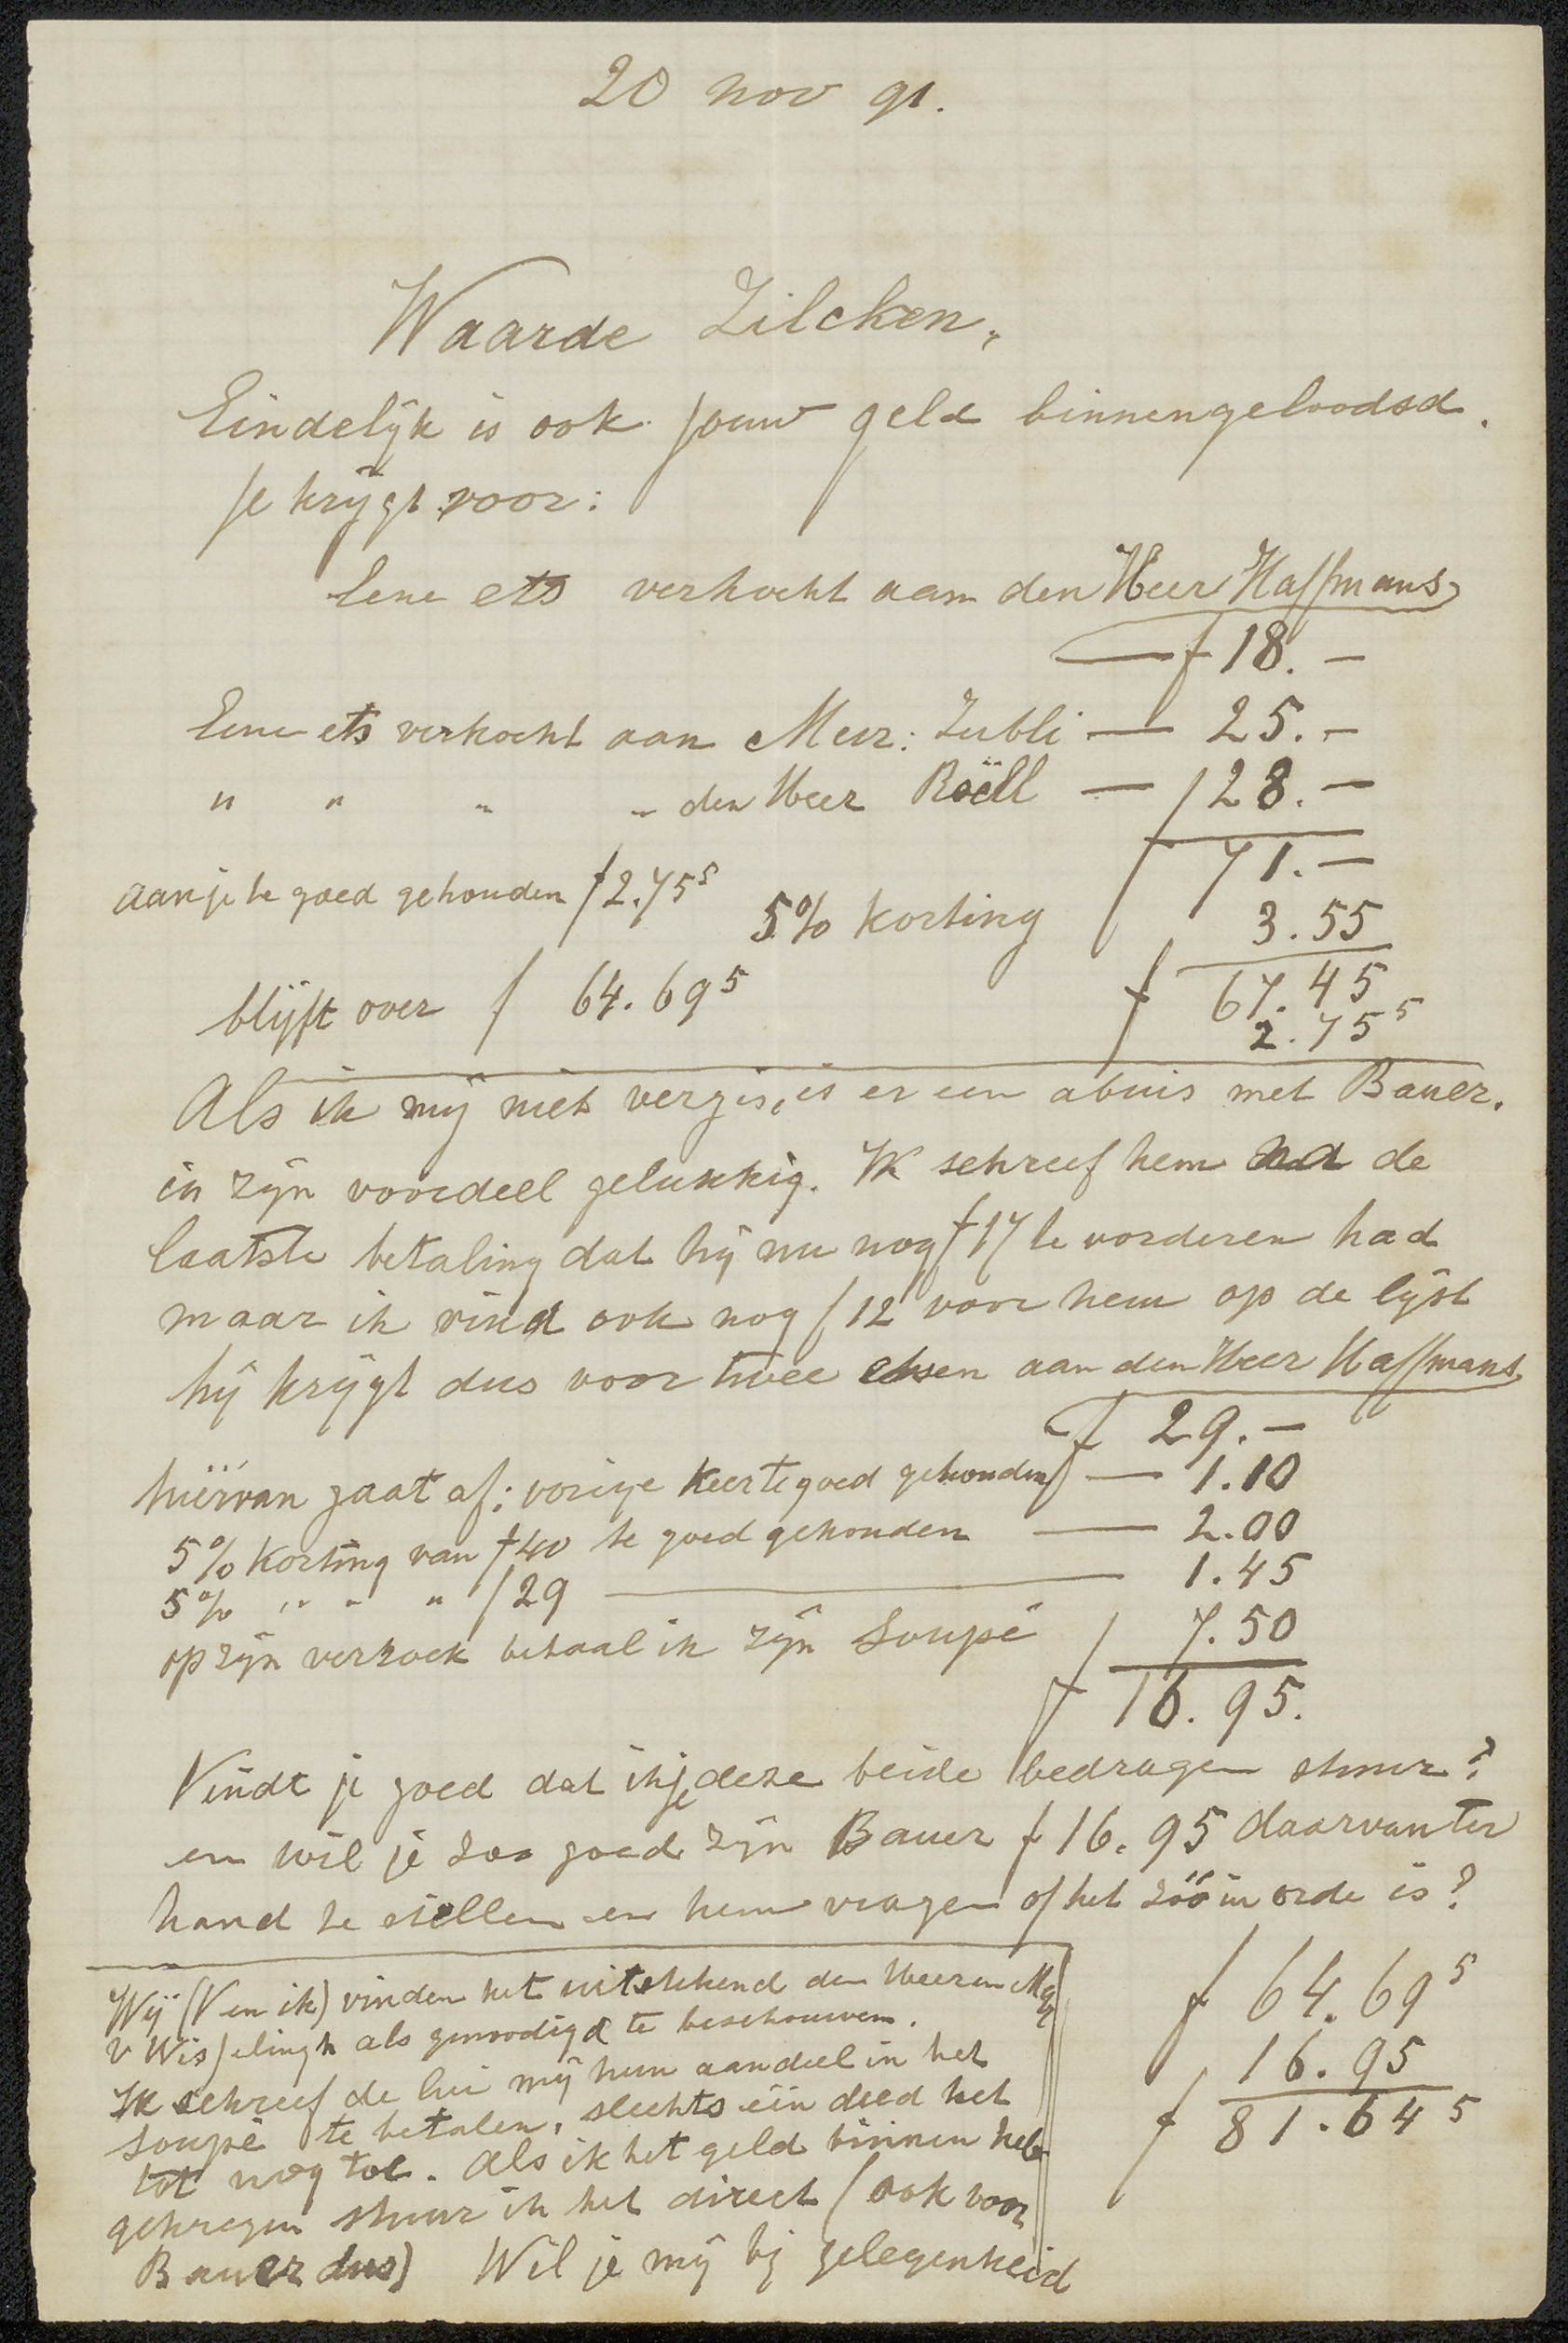 20 nov 91.
Waarde Zilcken,
Eindelijk is ook jouw geld binnengeloodsd.
Je krijgt voor:
Eene ets verkocht aan den Heer Haffmans
— f 18.—
Eene ets verkocht aan Mevr: Zubli — 25.—
" " " " den Heer Roëll — 28.—
f 71.—
aan je te goed gehouden f 2.75⁵
5% korting 3.55
f 67.45
blijft over f 64.69⁵
2.75⁵
Als ik mij niet vergis, is er een abuis met Bauer.
in zijn voordeel gelukkig. Ik schreef hem na de
laatste betaling dat hij nu nog f 17 te vorderen had
maar ik vind ook nog f 12 voor hem op de lijst
hij krijgt dus voor twee etsen aan den Heer Haffmans
f 29.—
hiervan gaat af: vorige keer te goed gehouden — 1.10
5% korting van f 40 te goed gehouden — 2.00
5% " " " f 29 — 1.45
op zijn verzoek betaal ik zijn Soupé 7.50
f 16.95.
Vindt je goed dat ik je deze beide bedragen stuur?
en wil je zoo goed zijn Bauer f 16.95 daarvan ter
hand te stellen en hem vragen of het zóó in orde is?
Wij (V en ik) vinden het uitstekend den Heeren
v Wisselingh als genoodigd te beschouwen.
Ik schreef de lui mij hun aandeel in het
Soupé te betalen, slechts één deed het
tot nog toe. Als ik het geld binnen heb
gekregen stuur ik het direct (ook voor
Bauer dus) Wil je mij bij gelegenheid
f 64.69⁵
16.95
f 81.64⁵